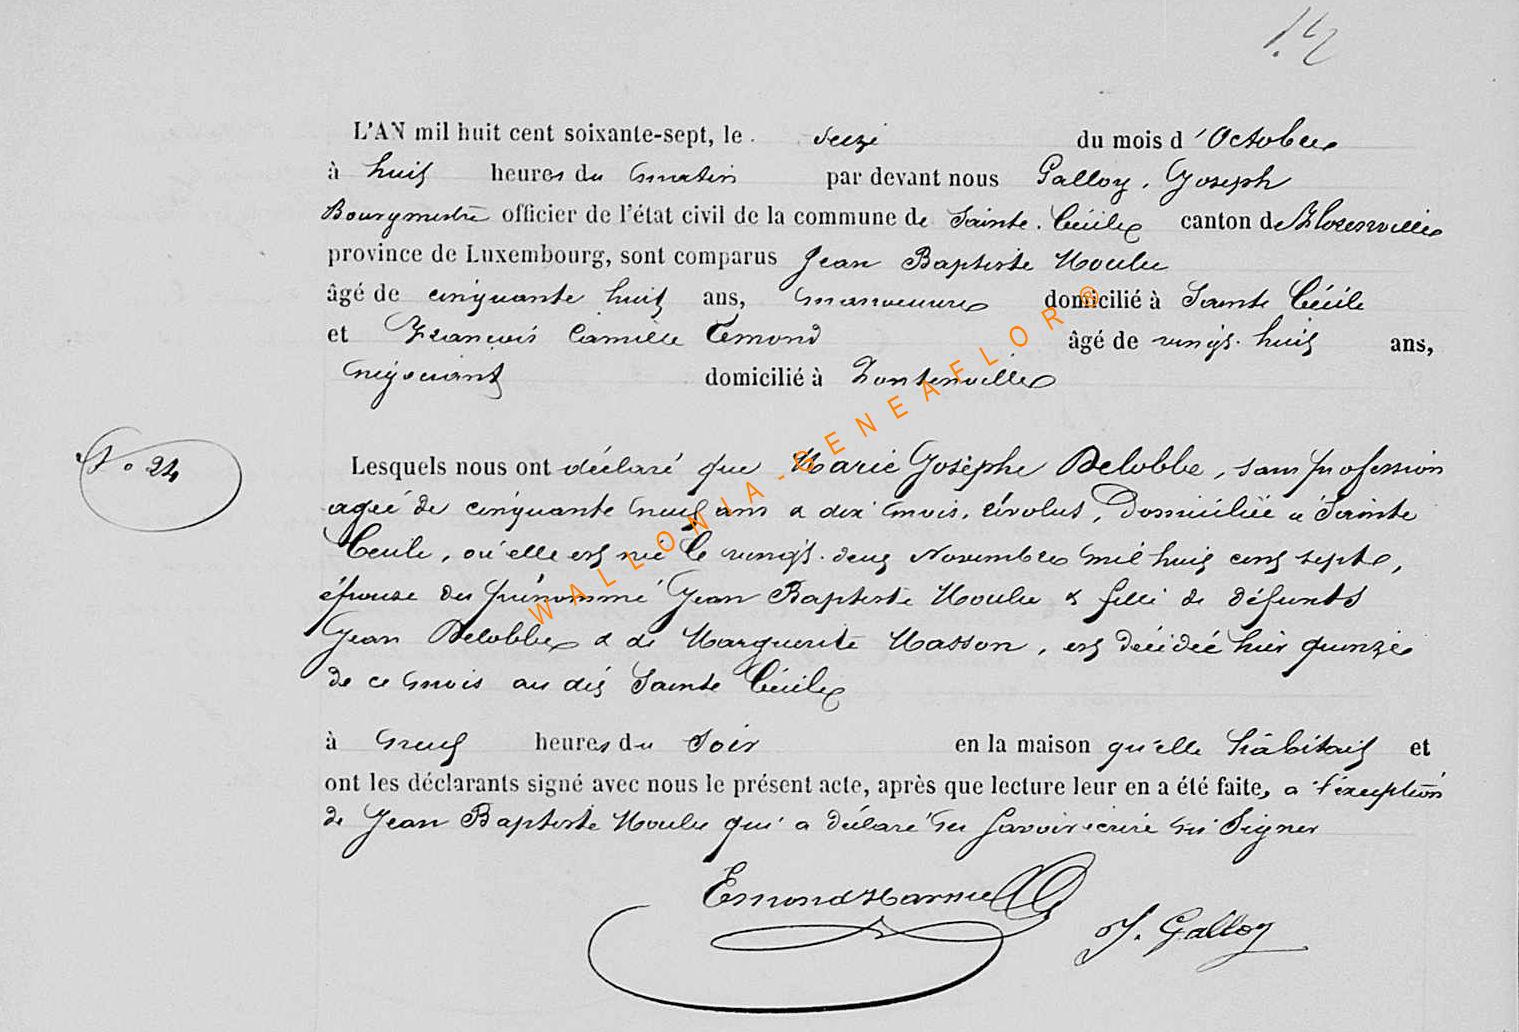 L'AN mil huit cent soixante-sept, le seize du mois d'Octobre
à huit heures du matin par devant nous Galloy, Joseph
Bourgmestre officier de l'état civil de la commune de Sainte-Cécile canton de Florenville
province de Luxembourg, sont comparus Jean Baptiste Houlu
âgé de cinquante huit ans, manoeuvre domicilié à Sainte Cécile
et François Camille Emond âgé de vingt-huit ans,
négociant domicilié à Fontenoille
N° 24
Lesquels nous ont déclaré que Marie Josèphe Delobbe, sans profession
agée de cinquante neuf ans & dix mois, révolus, Domiciliée à Sainte
Cecile, où elle est née le vingt-deux Novembre mil huit cent sept,
épouse du prénommé Jean Baptiste Houlu & fille de défunts
Jean Delobbe & de Marguerite Masson, est décédée hier quinze
de ce mois au dit Sainte Cécile
à neuf heures du soir en la maison qu'elle habitait et
ont les déclarants signé avec nous le présent acte, après que lecture leur en a été faite, a l'exception
de Jean Baptiste Houlu qui a déclaré ne savoir écrire ni signer
J. Galloy
WALLONIA-GENEAFLOR ®